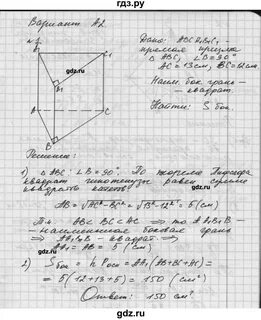 гдз.ру
Вариант А2
№1
Дано: ABCA₁B₁C₁ -
прямая призма
△ ABC, ∠B = 90°
AC = 13см, BC = 12см
Наим. бок. грань -
- квадрат.
Найти: S бок.
B C₁
B₁
A C
B
gdz.ru
gdz.ru
gdz.ru
Решение:
1) △ ABC: ∠B = 90°. По теореме Пифагора
квадрат гипотенузы равен сумме
квадратов катетов
AB = √AC² - BC² = √13² - 12² = 5 (см)
Т.к AB < BC < AC ⇒ то AA₁B₁B -
- наименьшая боковая грань
⇒ AA₁B₁B - квадрат ⇒
⇒ AA₁ = AB = 5 (см)
gdz.ru
gdz.ru
2) Sбок = h Pосн = AA₁(AB + BC + AC) =
= 5(12 + 13 + 5) = 150 (см²)
Ответ: 150 см²
gdz.ru